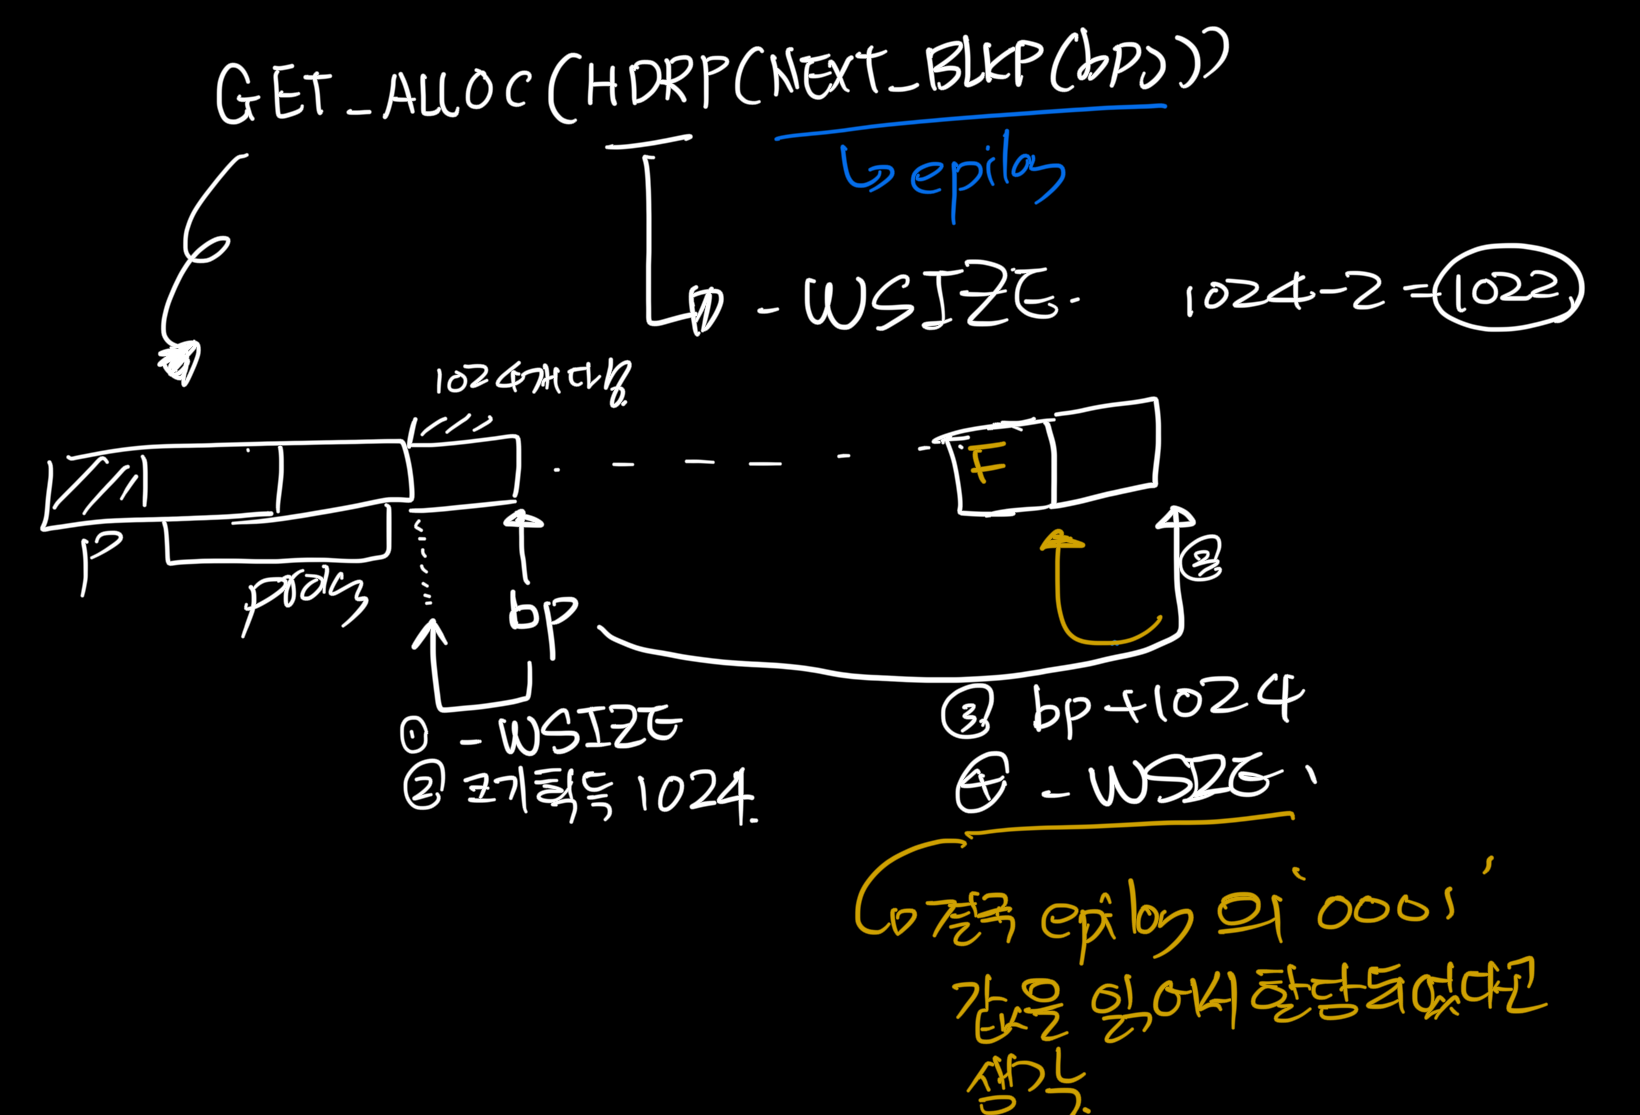 GET_ALLOC(HDRP(NEXT_BLKP(bp)))
↳ epilog
- WSIZE.
1024-2 = 1022
1024개 담음.
F
P
prolog
bp
③
① - WSIZE
② 크기획득 1024.
③ bp+1024
④ - WSIZE.
↳ 결국 epilog 의 '0001'
값을 읽어서 할당되었다고
생각